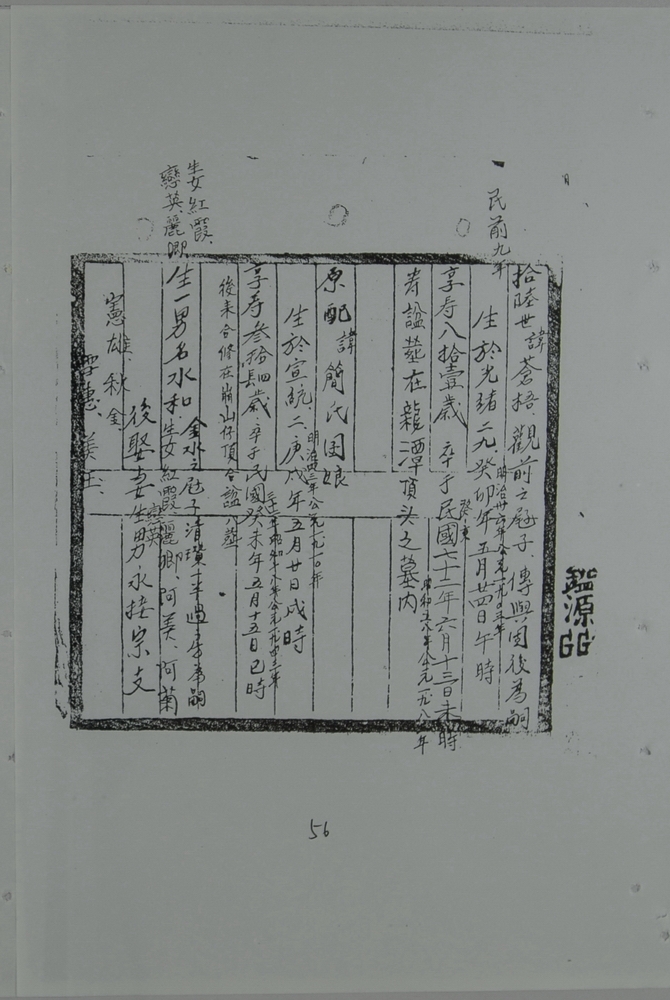 民前九年
拾陸世諱蒼梧、觀前之尫子、傳與因後為嗣
生於光緒二九癸卯年五月廿四日午時
明治卅六年公元一九〇三年
享寿八拾壹歲 卒于民國七十二年六月十三日未時
癸亥
昭和五八年公元一九八三年
寿諡葬在龍潭頂头之墓内
原配諱簡氏因娘
生於宣統二庚戌年五月廿日戌時
明治四三年公元一九一〇年
享寿参拾肆歲、卒于民國癸未年五月十五日巳時
三十二年昭和十八年公元一九四三年
後来合修在崩山仔頂合諡八葬
金水之尫子清瓚
生一男名水和、生女紅霞、麗卿、阿美、阿菊
戀英
生女紅霞、
戀英、麗卿
後娶妻生男永接宗支
憲雄、秋金
雪惠、美玉、
鑑源
GG
56